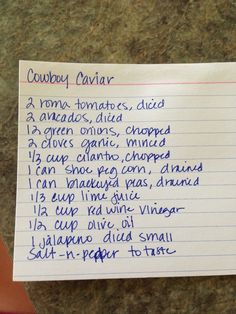 Cowboy Caviar
2 roma tomatoes, diced
2 avacados, diced
12 green onions, chopped
2 cloves garlic, minced
1/3 cup cilantro, chopped
1 can shoe peg corn, drained
1 can blackeyed peas, drained
1/3 cup lime juice
1/2 cup red wine vinegar
1/2 cup olive oil
1 jalapeno diced small
Salt-n-pepper to taste